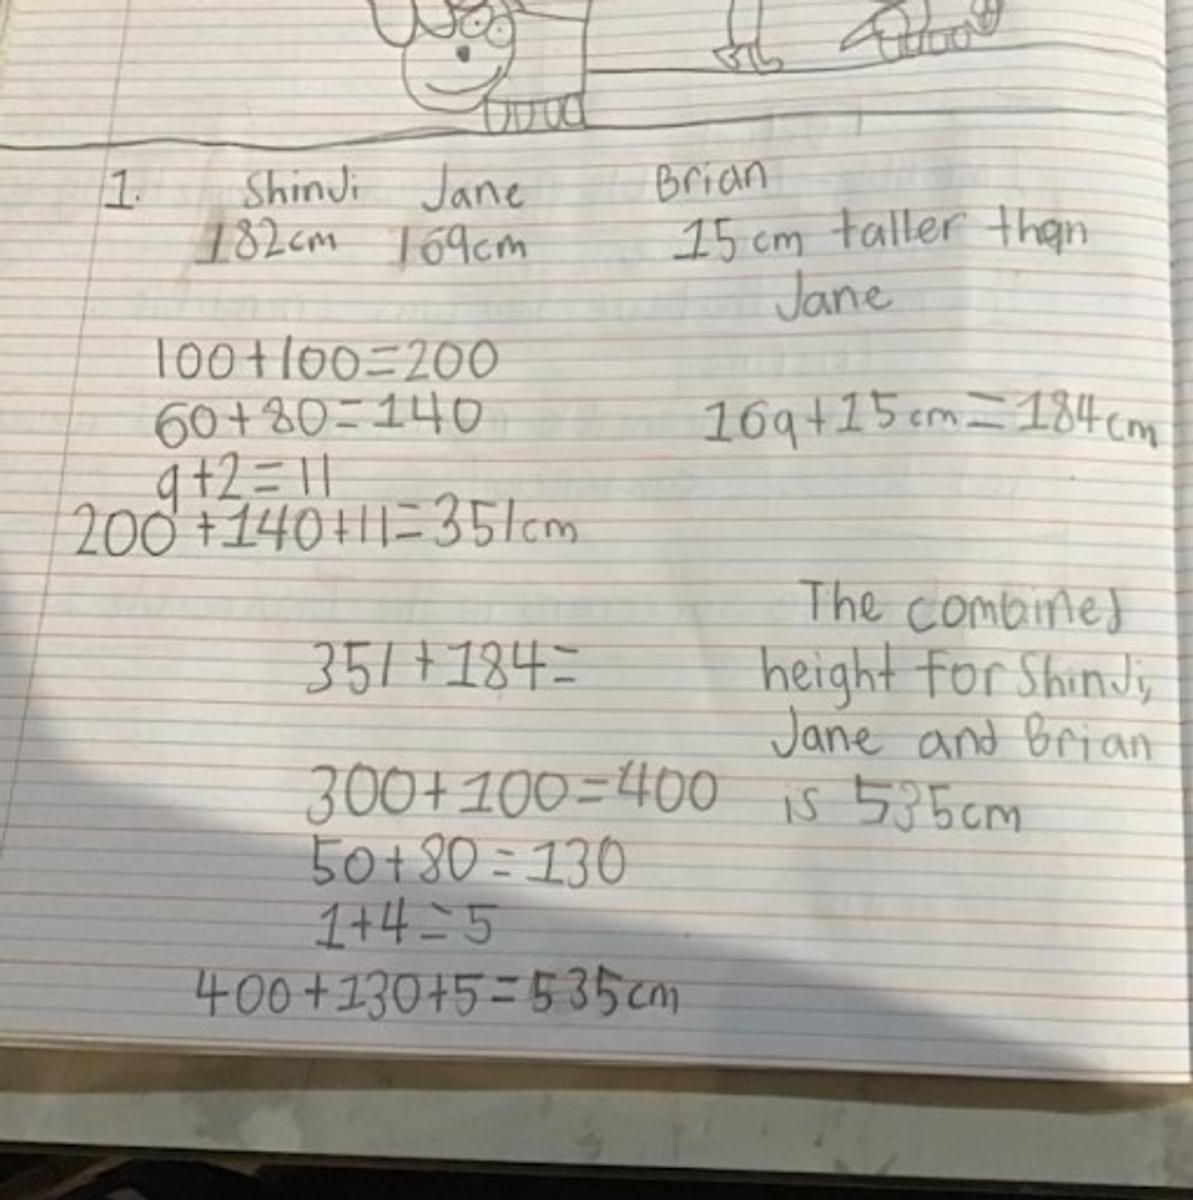 1. Shinji Jane Brian
182cm 169cm 15cm taller than
Jane
100+100=200
60+80=140 169+15cm=184cm
9+2=11
200+140+11=351cm
The combined
351+184= height for Shinji,
Jane and Brian
300+100=400 is 535cm
50+80=130
1+4=5
400+130+5=535cm